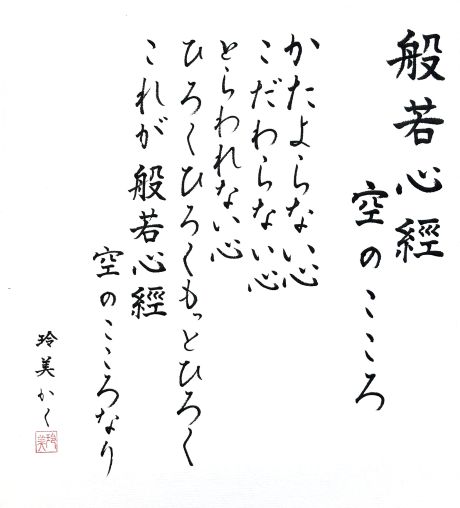 般若心經
空のこころ
かたよらない心
こだわらない心
とらわれない心
ひろくひろくもっとひろく
これが般若心經
空のこころなり
玲美かく
玲美